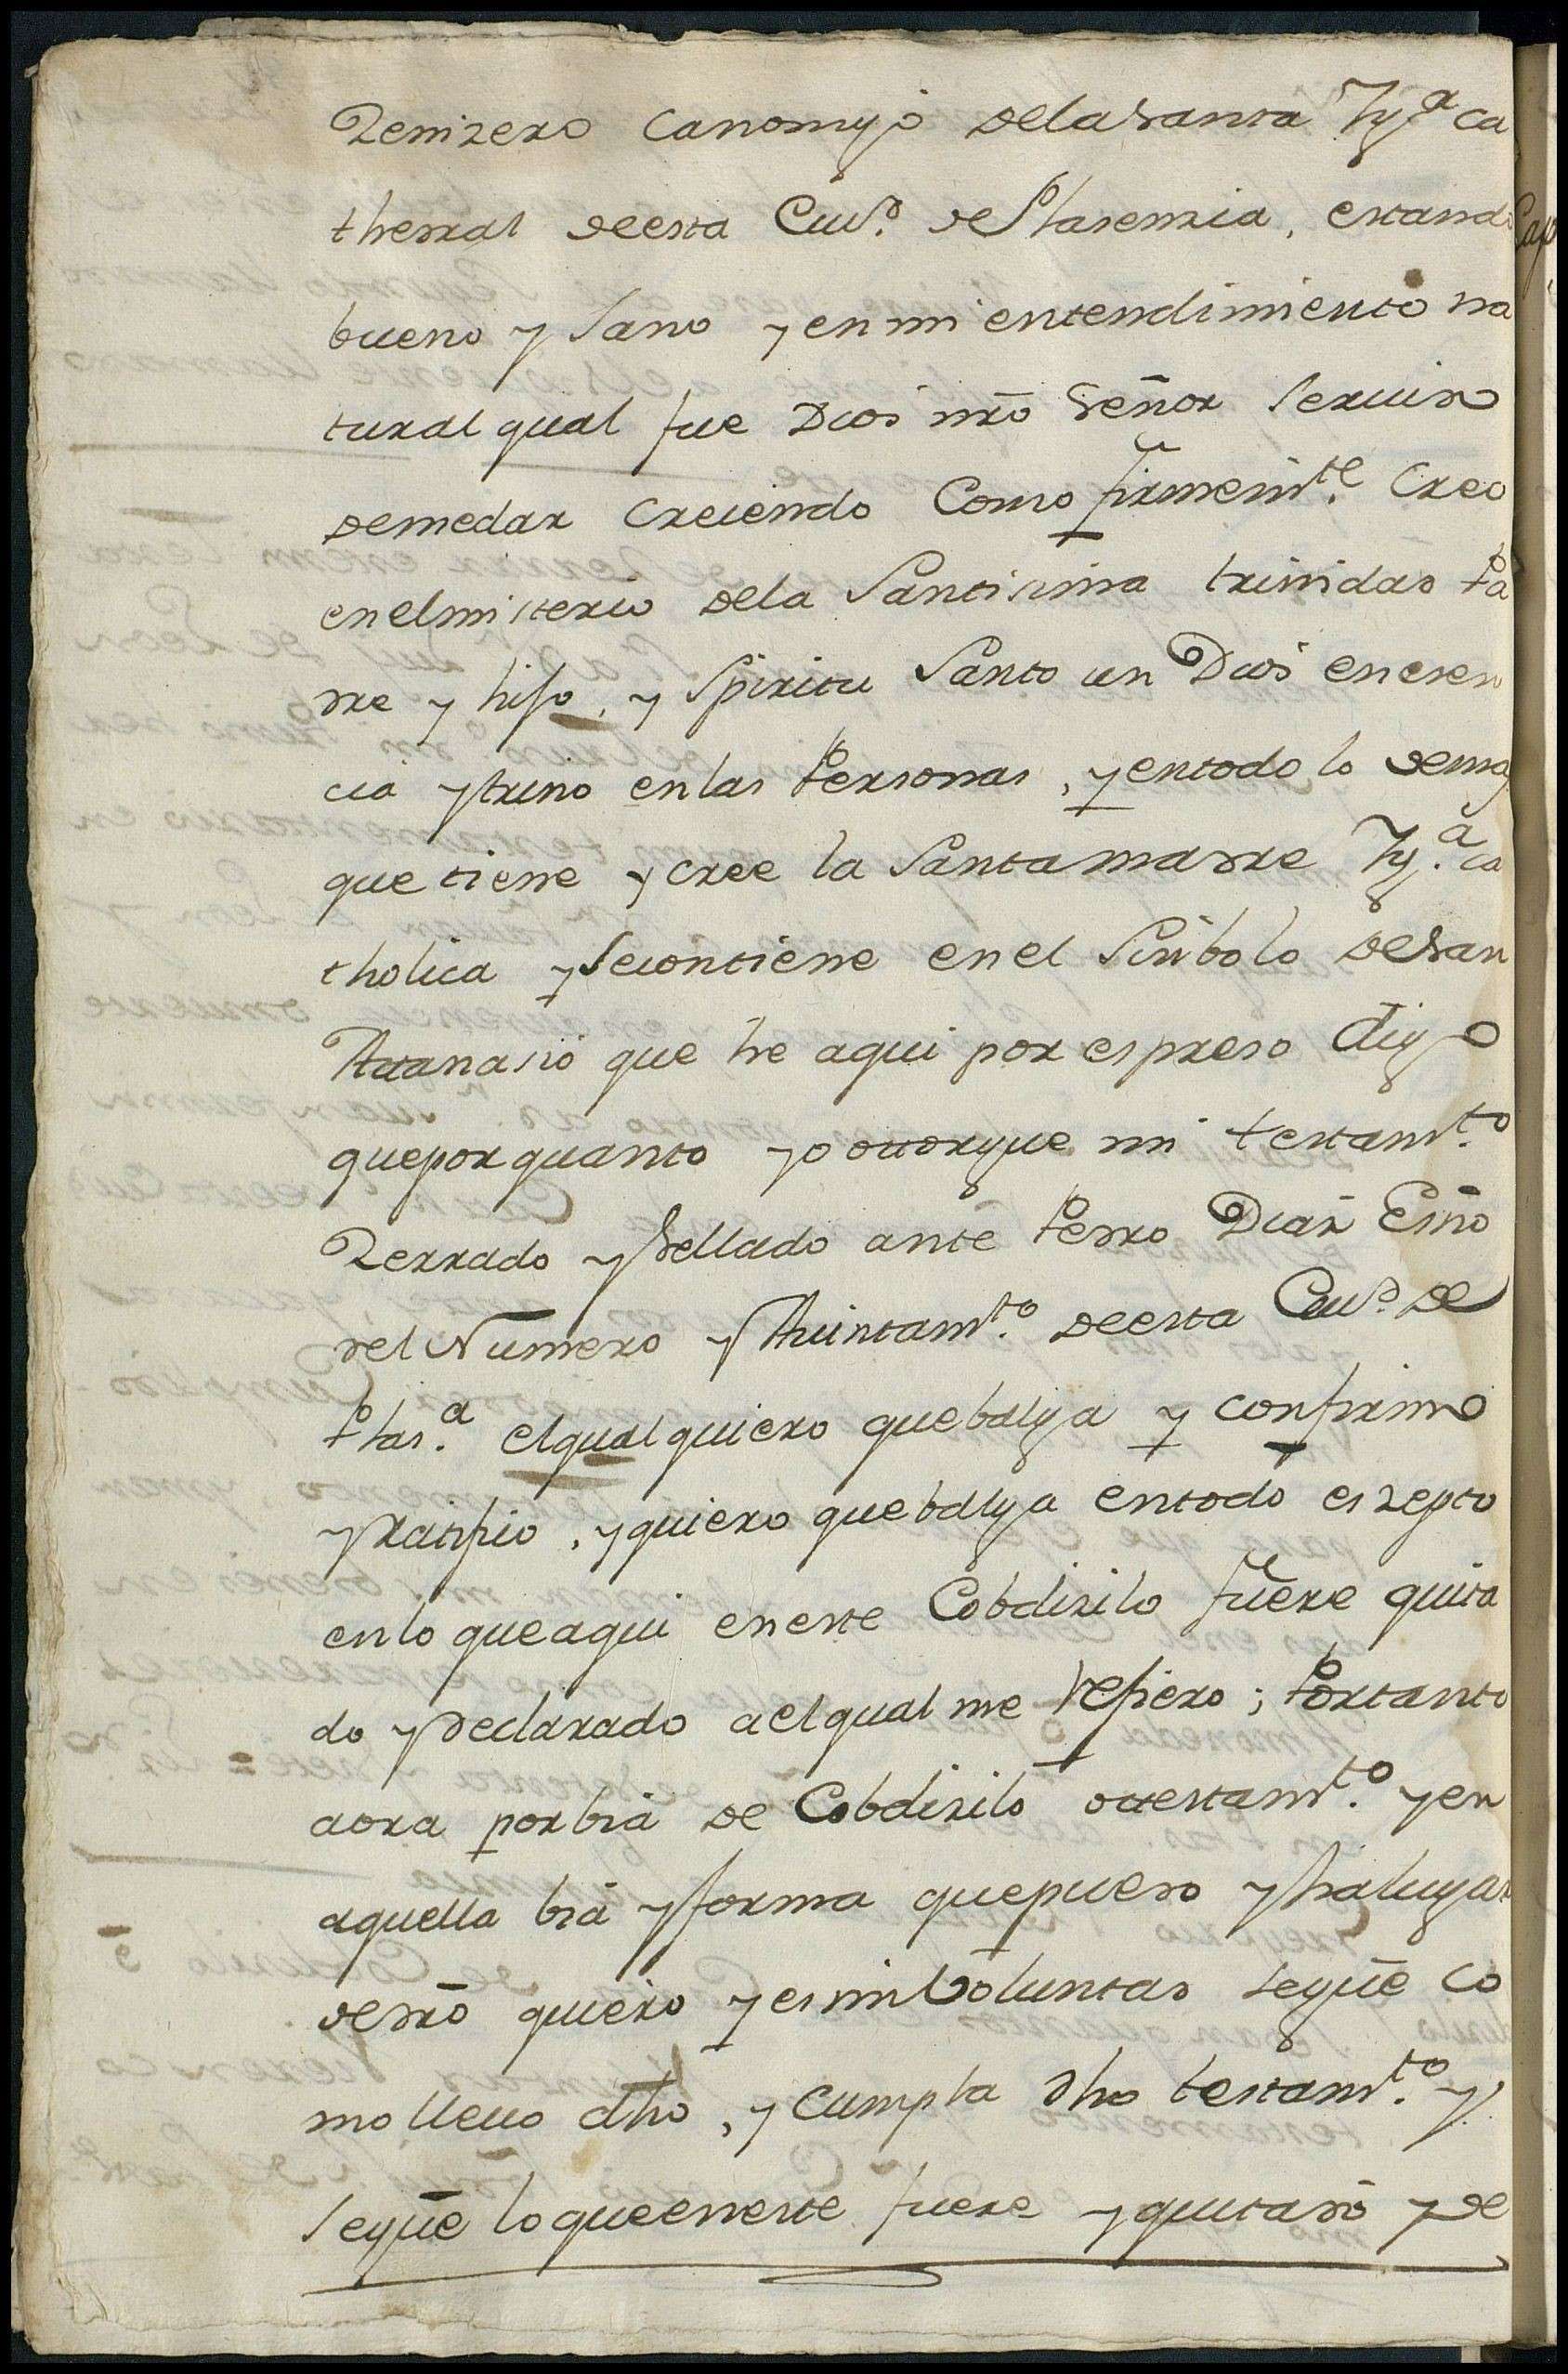 Zenizero canonigo dela santa Igª ca
thedral de esta Ciuᵈ. de Plasenzia, estando
bueno y sano y en mi entendimiento na
tural qual fue Dios nrō Señor seruido
de me dar creiendo como firmemᵗᵉ. creo
en el misterio dela Santisima trinidad Pa
dre y hijo, y Spiritu Santo un Dios en esen
cia y trino en las Personas, y en todo lo demas
que tiene y cree la Santa madre Igª. ca
tholica y se contiene en el Sinbolo de San
Atanasio que he aqui por espreso digo
que por quanto yo otorgue mi testamᵗᵒ.
Zerrado y Sellado ante Pedro Diaz Esnō
del Numero y Aiuntamᵗᵒ. de esta Ciuᵈ. de
Plasª. el qual quiero que balga y confirmo
y ratifio, y quiero que balga en todo eszepto
en lo que aqui en este Cobdizilo fuere quita
do y declarado a el qual me refiero; Por tanto
aora por bia de Cobdizilo o testamᵗᵒ. y en
aquella bia y forma que puedo y ha lugar
de drō quiero y es mi boluntad se gūe co
mo lleuo dho, y cumpla dho testamᵗᵒ. y
se gūe lo que en este fuere y quitado y de